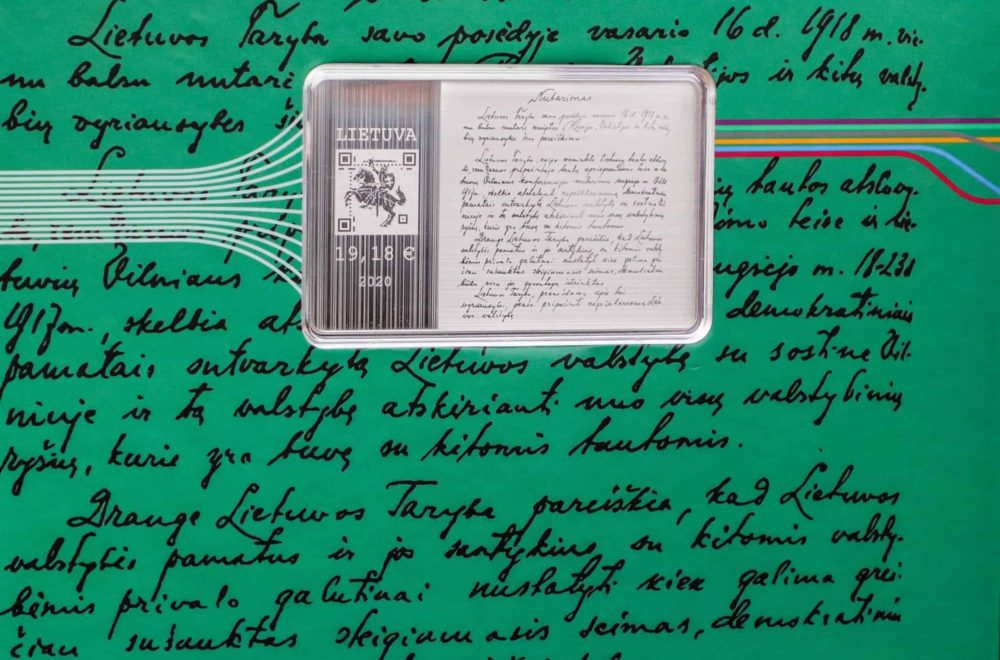 Lietuvos Taryba savo posėdyje vasario 16 d. 1918 m. vie-
nu balsu nutarė ir kitų valsty-
bių vyriausybes
LIETUVA
19,18 €
2020
Nutarimas
Lietuvos Taryba savo posėdyje vasario 16 d. 1918 m. vie-
nu balsu nutarė kreiptis į Rusijos, Vokietijos ir kitų valsty-
bių vyriausybes šiuo pareiškimu:
Lietuvos Taryba, kaipo vienintelė lietuvių tautos atstovy-
bė, remdamos pripažintąja tautų apsisprendimo teise ir lie-
tuvių Vilniaus konferencijos nutarimu rugsėjo m. 18-23 d
1917 m. skelbia atstatanti nepriklausomą, demokratiniais
pamatais sutvarkytą Lietuvos valstybę su sostine Vil-
niuje ir tą valstybę atskirianti nuo visų valstybinių
ryšių, kurie yra buvę su kitomis tautomis.
Drauge Lietuvos Taryba pareiškia, kad Lietuvos
valstybės pamatus ir jos santykius su kitomis valsty-
bėmis privalo galutinai nustatyti kiek galima grei-
čiau sušauktas steigiamasis seimas, demokratiniu
būdu visų jo gyventojų išrinktas.
Lietuvos Taryba, pranešdama apie tai
vyriausybei, prašo pripažinti nepriklausomą Lietu-
vos valstybę.
tautos atstov-
teise ir lie-
tuvių Vilniaus m. 18-23 d
1917 m. skelbia demokratiniais
pamatais sutvarkytą Lietuvos valstybę su sostine Vil-
niuje ir tą valstybę atskirianti nuo visų valstybinių
ryšių, kurie yra buvę su kitomis tautomis.
Drauge Lietuvos Taryba pareiškia, kad Lietuvos
valstybės pamatus ir jos santykius su kitomis valsty-
bėmis privalo galutinai nustatyti kiek galima grei-
čiau sušauktas steigiamasis seimas, demokratiniu